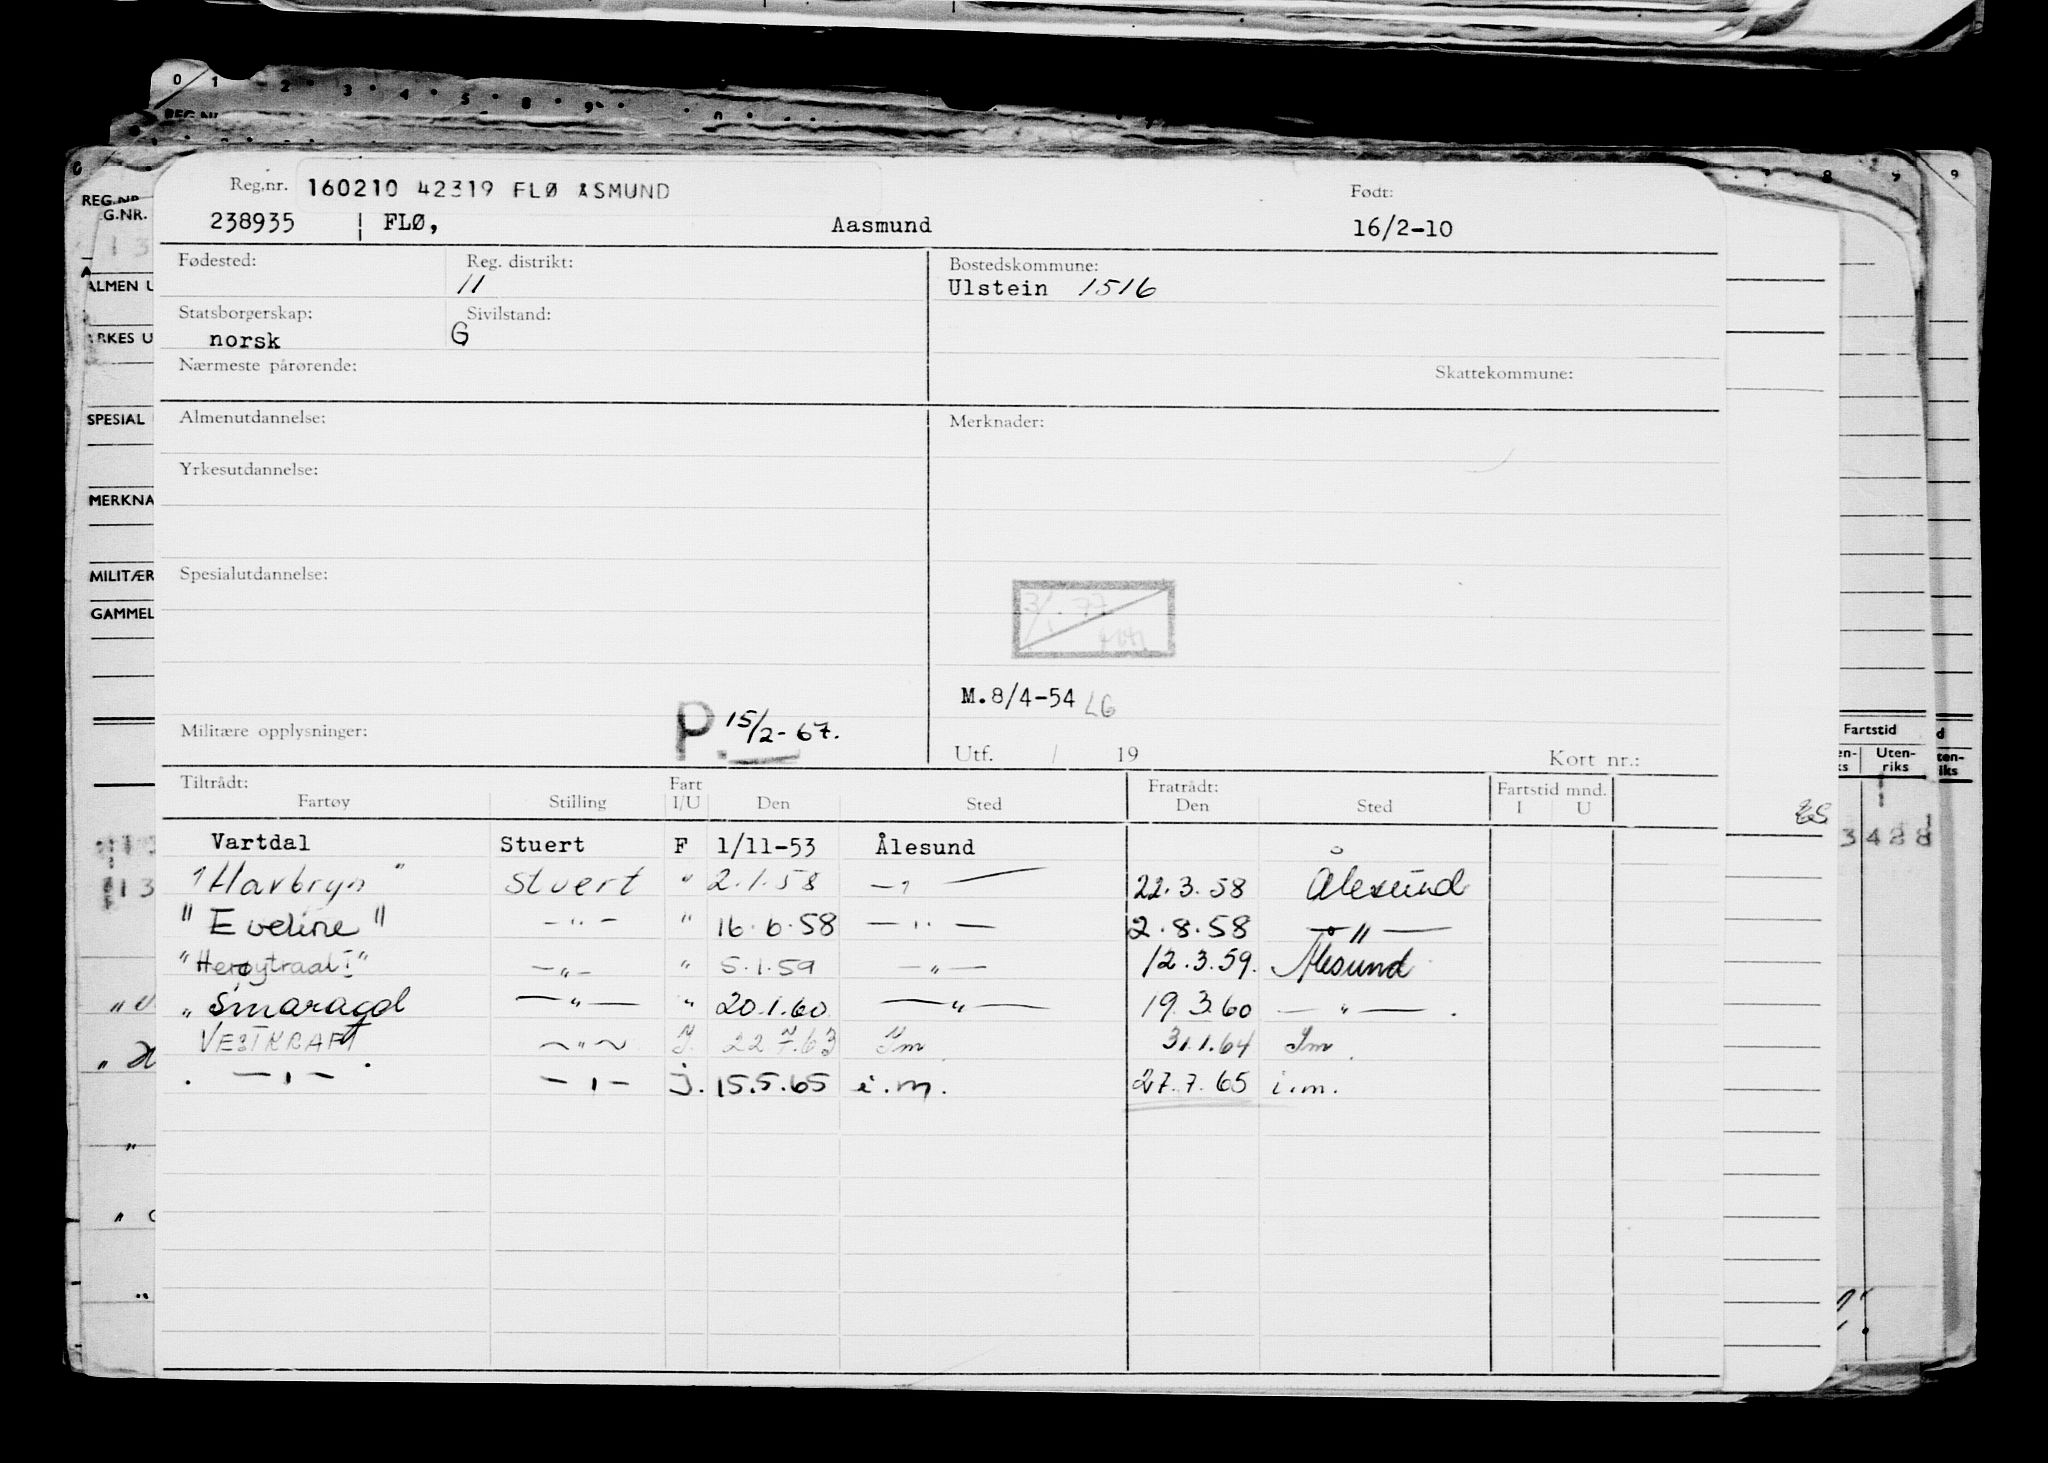 Reg.nr. 160210 42319 FLØ ÅSMUND Født:
238935 FLØ, Aasmund 16/2-10
Fødested: Reg. distrikt: 11 Bostedskommune:
Ulstein 1516
Statsborgerskap: norsk Sivilstand: G
Nærmeste pårørende: Skattekommune:
Almenutdannelse: Merknader:
Yrkesutdannelse:
Spesialutdannelse:
M.8/4-54 LG
Militære opplysninger: P. 15/2-67.
Utf. / 19 Kort nr.:
Tiltrådt: Fart Fratrådt: Fartstid mnd.
Fartøy Stilling I/U Den Sted Den Sted I U
Vartdal Stuert F 1/11-53 Ålesund
"Havbryn" Stuert " 2.1.58 — " — 22.3.58 Ålesund
"Eveline" — " — " 16.6.58 — " — 2.8.58 — " —
"Herøytraal I" — " — " 5.1.59 — " — 12.3.59. Ålesund
" Smaragd — " — " 20.1.60 — " — 19.3.60 — " — .
VESTKRAFT — " — J. 22.7.63 Im 31.1.64 Im.
— " — — " — j. 15.5.65 i.m. 27.7.65 i.m.
REG.NR.
G.NR.
ALMEN U
YRKES U
SPESIAL
MERKNA
MILITÆR
GAMMEL
Fartstid
Uten-
riks
3428
0 1 2 3 4 5 8 9